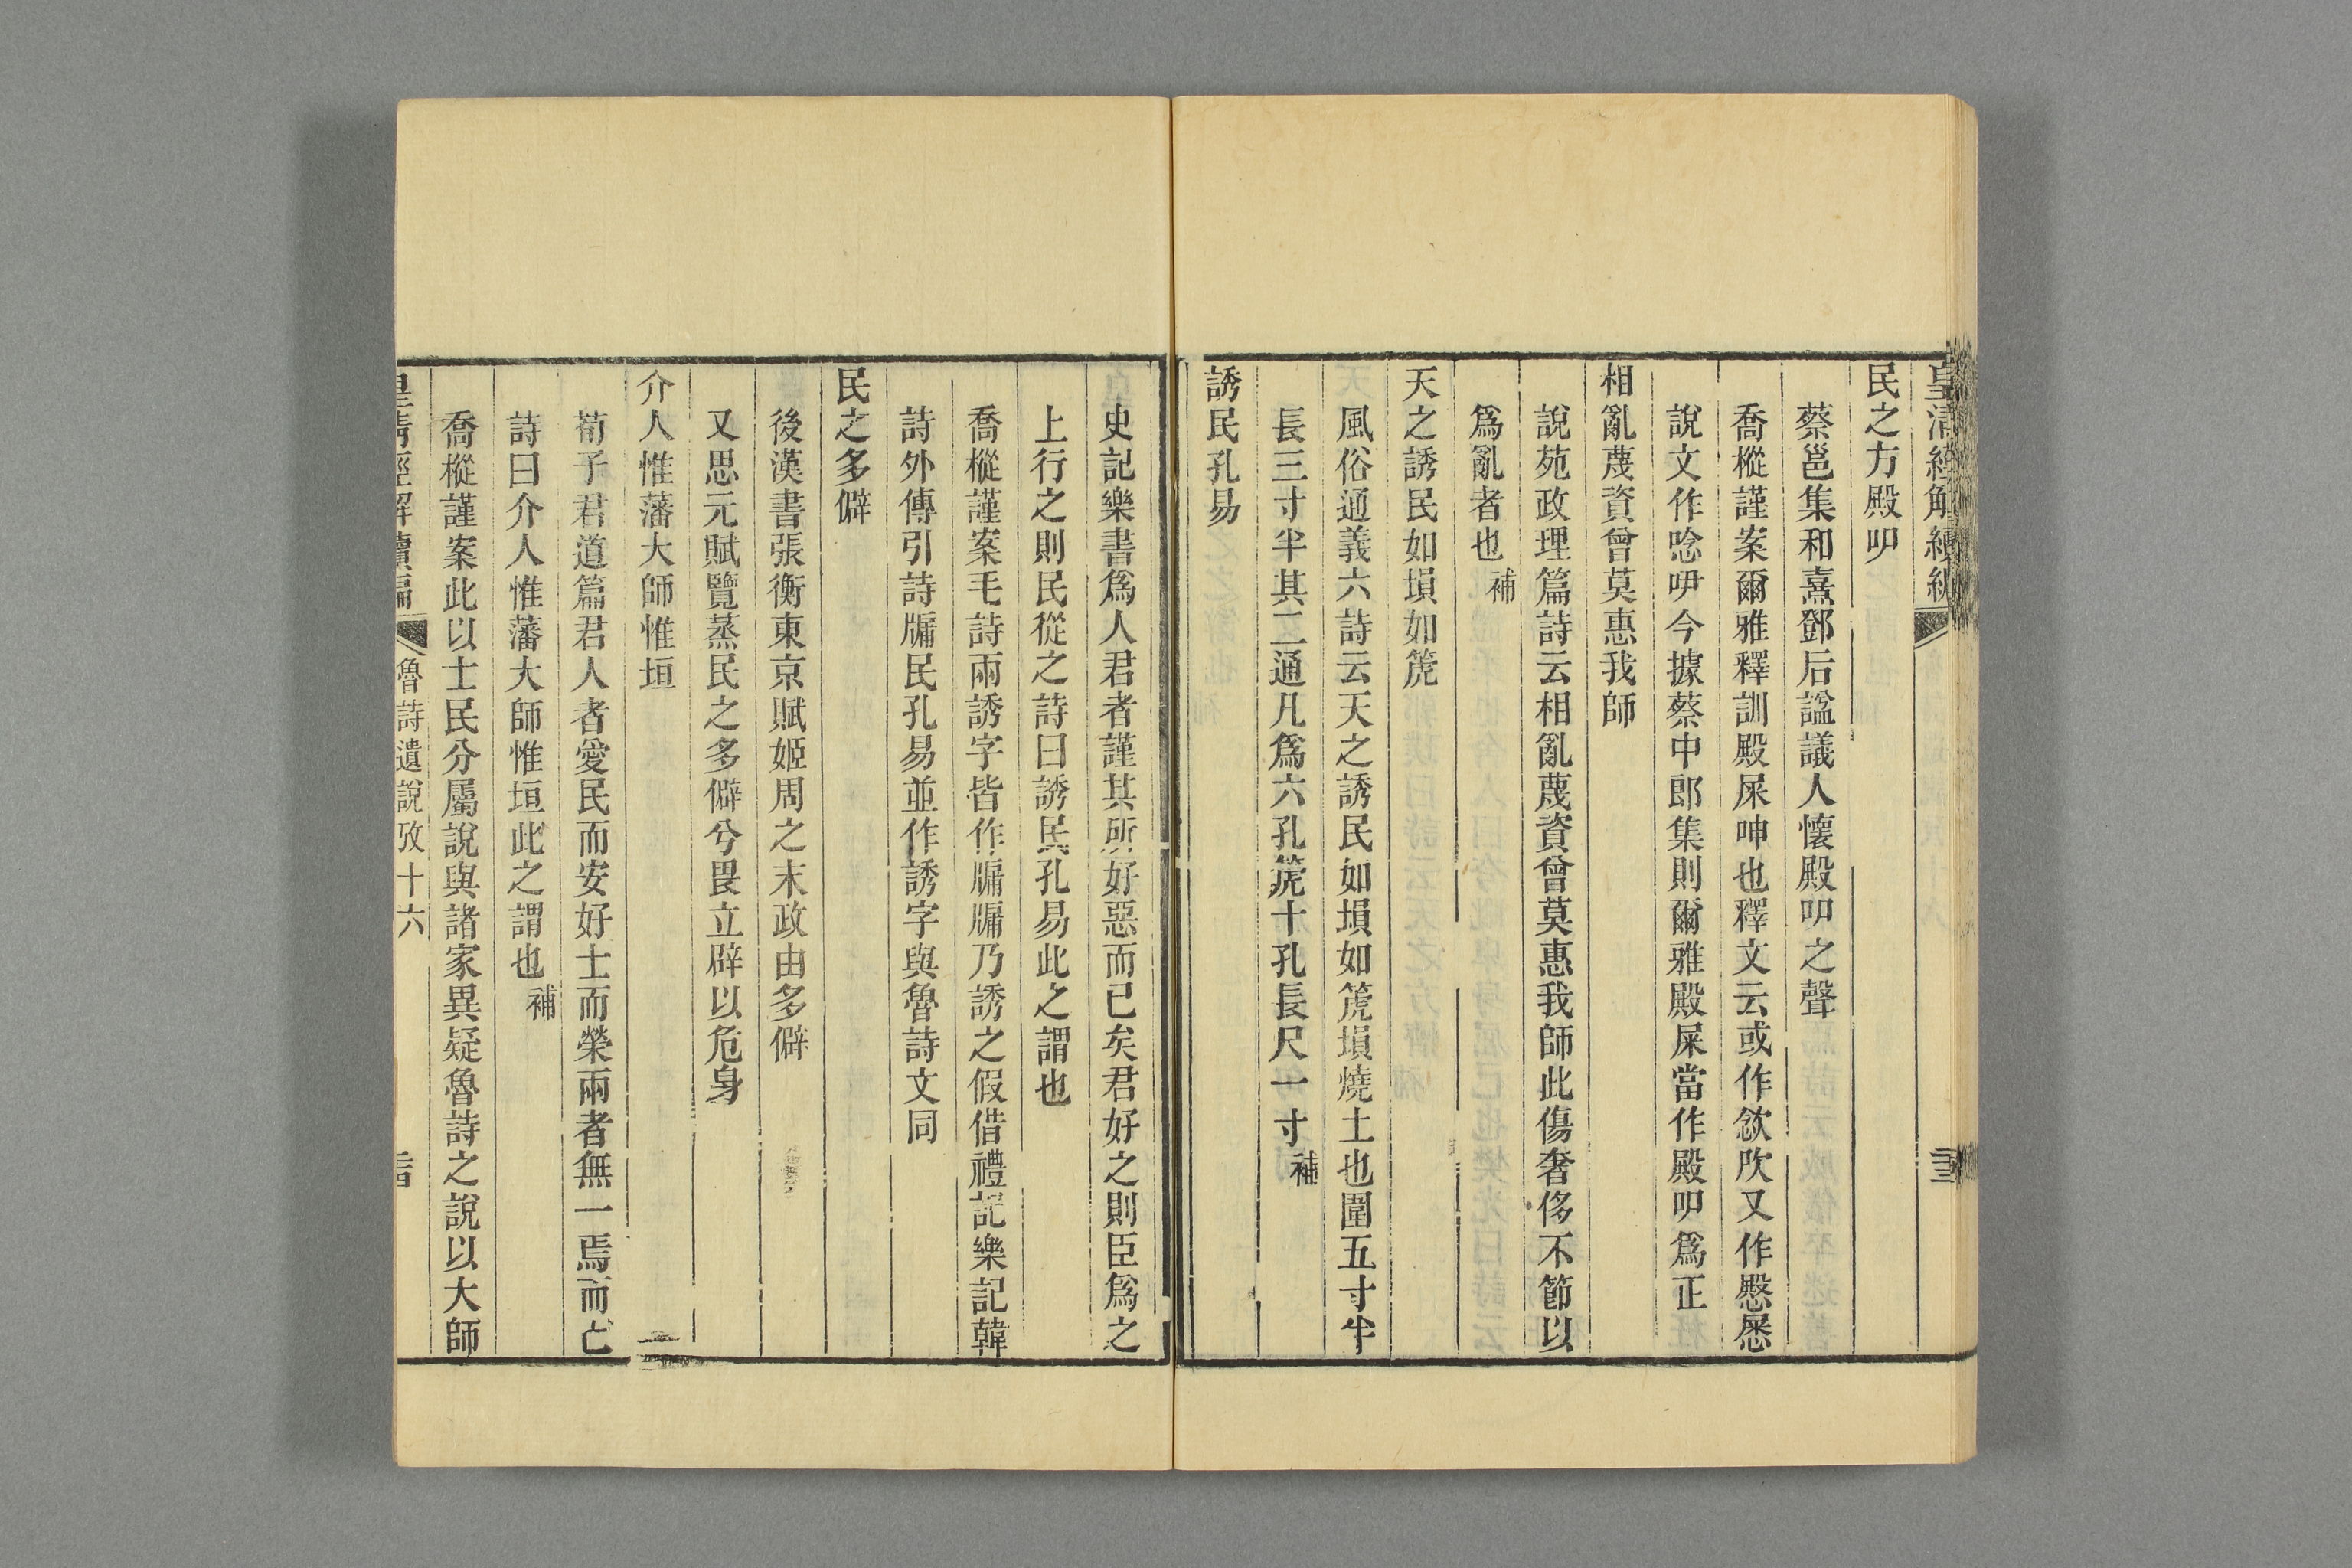 皇清經解續編
民之方殿吅
蔡邕集和熹鄧后諡議人懷殿吅之聲
喬樅謹案爾雅釋訓殿屎呻也釋文云或作欿欥又作慇㞙
說文作唸吚今據蔡中郎集則爾雅殿屎當作殿吅爲正
相亂蔑資曾莫惠我師
說苑政理篇詩云相亂蔑資曾莫惠我師此傷奢侈不節以
爲亂者也補
天之誘民如塤如箎
風俗通義六詩云天之誘民如塤如箎塤燒土也圍五寸半
長三寸半其二通凡爲六孔箎十孔長尺一寸補
誘民孔易
史記樂書爲人君者謹其所好惡而已矣君好之則臣爲之
上行之則民從之詩曰誘民孔易此之謂也
喬樅謹案毛詩兩誘字皆作牖牖乃誘之假借禮記樂記韓
詩外傳引詩牖民孔易並作誘字與魯詩文同
民之多僻
後漢書張衡東京賦姬周之末政由多僻
又思元賦覽蒸民之多僻兮畏立辟以危身
介人惟藩大師惟垣
荀子君道篇君人者愛民而安好士而榮兩者無一焉而亡
詩曰介人惟藩大師惟垣此之謂也補
喬樅謹案此以士民分屬說與諸家異疑魯詩之說以大師
皇清經解續編 魯詩遺說攷十六